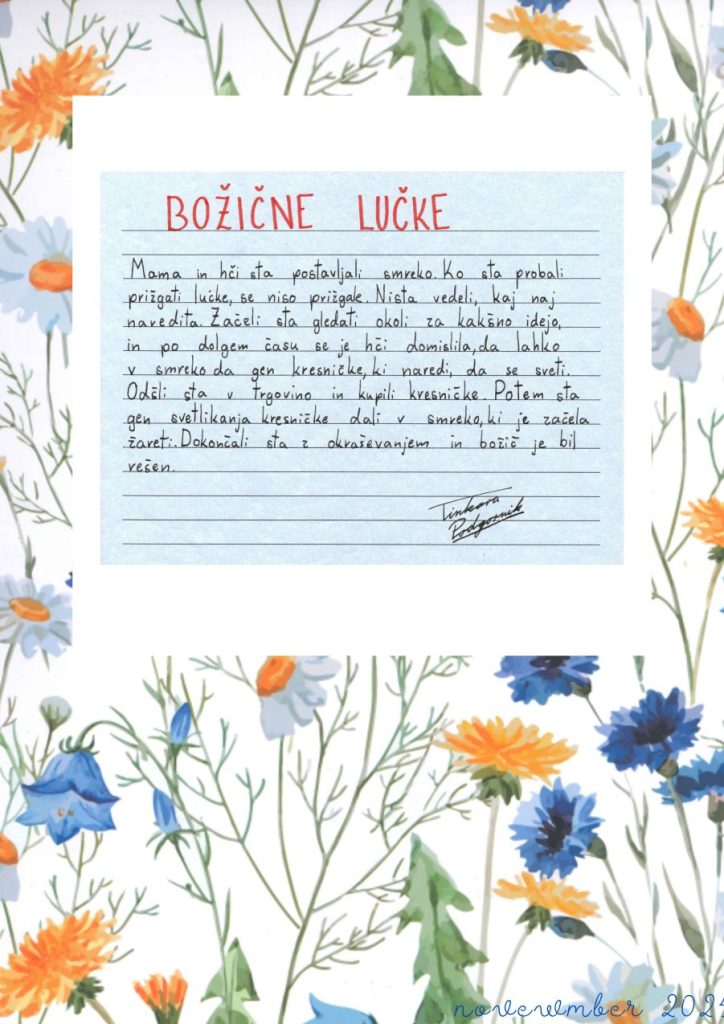 BOŽIČNE LUČKE
Mama in hči sta postavljali smreko. Ko sta probali
prižgati lučke, se niso prižgale. Nista vedeli, kaj naj
naredita. Začeli sta gledati okoli za kakšno idejo,
in po dolgem času se je hči domislila, da lahko
v smreko da gen kresničke, ki naredi, da se sveti.
Odšli sta v trgovino in kupili kresničke. Potem sta
gen svetlikanja kresničke dali v smreko, ki je začela
žareti. Dokončali sta z okraševanjem in božič je bil
rešen.
Tinkara
Podgornik